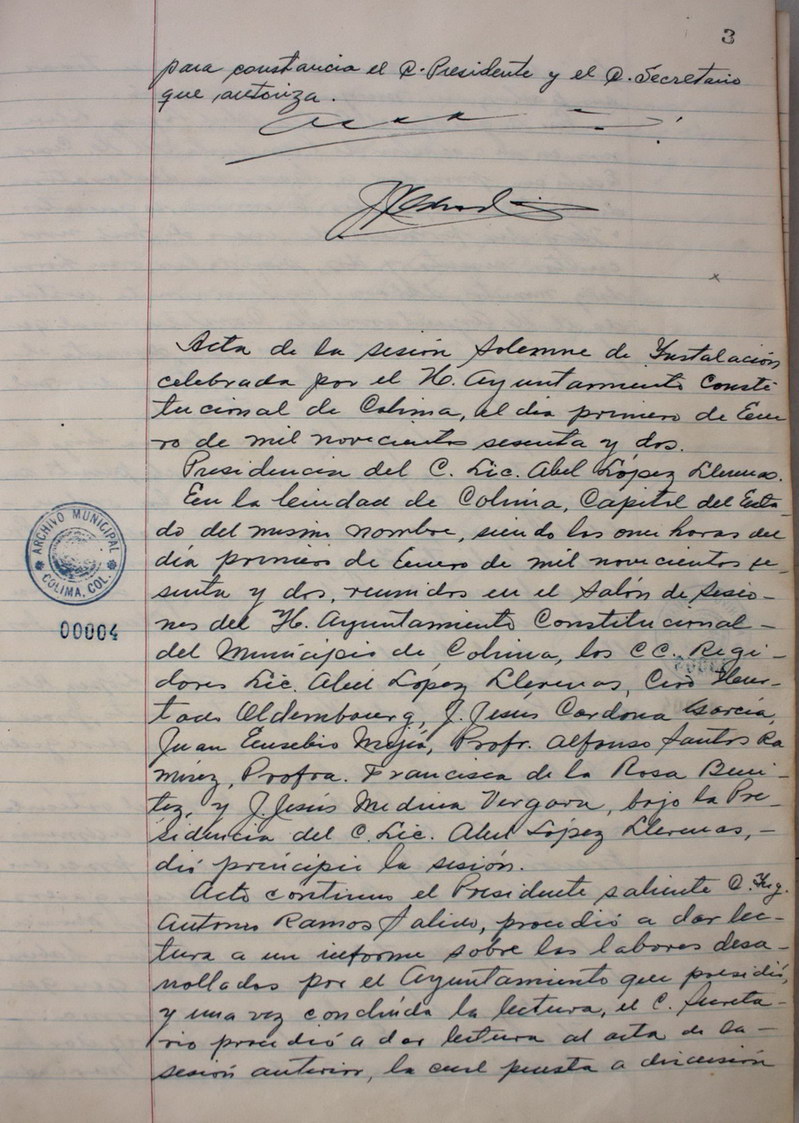 3
para constancia el C. Presidente y el C. Secretario
que autoriza.
Acta de la sesión solemne de Instalación
celebrada por el H. Ayuntamiento Consti
tucional de Colima, el día primero de Ene
ro de mil novecientos sesenta y dos.
Presidencia del C. Lic. Abel López Llerenas.
En la Ciudad de Colima, Capital del Esta-
do del mismo nombre, siendo las once horas del
día primero de Enero de mil novecientos se-
senta y dos, reunidos en el Salón de Sesio-
nes del H. Ayuntamiento Constitucional-
del Municipio de Colima, los CC. Regi-
dores Lic. Abel López Llerenas, Ciro Hur-
tado Oldembourg, J. Jesús Cardona García,
Juan Eusebio Mejía, Profr. Alfonso Santos Ra
mírez, Profra. Francisca de la Rosa Beni-
tez, y J. Jesús Medina Vergara, bajo la Pre-
sidencia del C. Lic. Abel López Llerenas,-
dió principio la sesión.
Acto continuo el Presidente saliente C. Ing.
Antonio Ramos Salido, procedió a dar lec-
tura a un informe sobre las labores desa-
rrolladas por el Ayuntamiento que presidió,
y una vez concluída la lectura, el C. Secreta-
rio procedió a dar lectura al acta de la-
sesión anterior, la cual puesta a discusión
ARCHIVO MUNICIPAL
COLIMA, COL.
00004